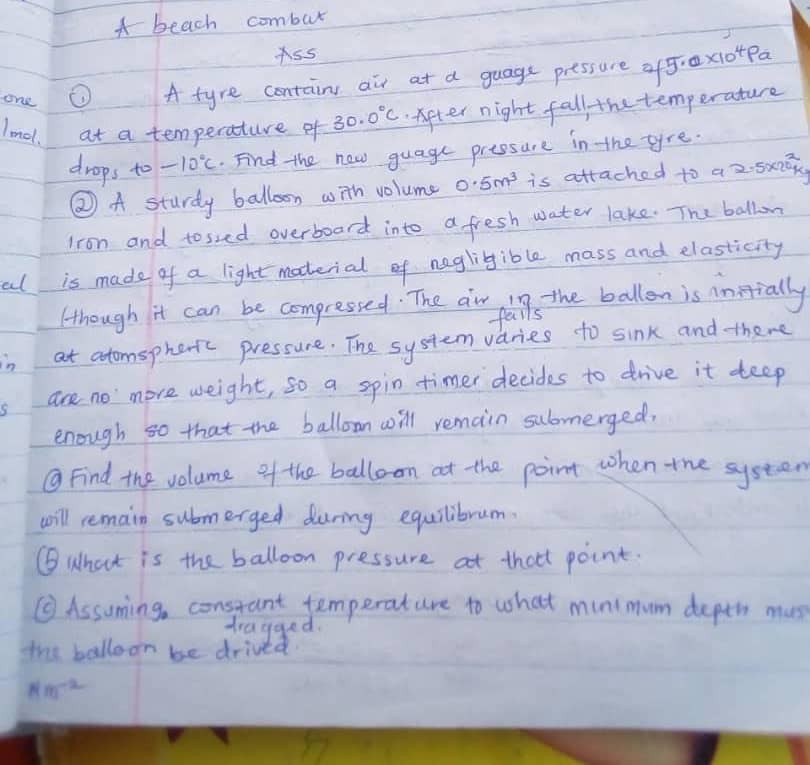 A beach combat
Ass
① A tyre contains air at a guage pressure of 5.0x10⁴Pa
at a temperature of 30.0°C. After night fall, the temperature
drops to -10°C. Find the new guage pressure in the tyre.
② A sturdy balloon with volume 0.5m³ is attached to a 2.5x10²kg
Iron and tossed overboard into a fresh water lake. The ballon
is made of a light material of negligible mass and elasticity
(though it can be compressed. The air in the ballon is initially
at atomspheric pressure. The system varies to sink and there
fails
are no more weight, so a spin timer decides to drive it deep
enough so that the balloon will remain submerged.
ⓐ Find the volume of the balloon at the point when the system
will remain submerged during equilibrum.
ⓑ What is the balloon pressure at that point.
ⓒ Assuming constant temperature to what minimum depth mus
the balloon be drived.
dragged.
Nm⁻²
one
1mol.
eal
in
s